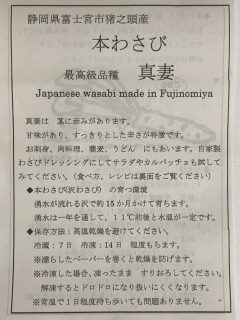 静岡県富士宮市猪之頭産
本わさび
最高級品種　真妻
Japanese wasabi made in Fujinomiya
真妻は　茎に赤みがあります。
甘味があり、すっきりとした辛さが特徴です。
お刺身、肉料理、蕎麦、うどん　にもあいます。自家製
わさびドレッシングにしてサラダやカルパッチョも試して
みてください。（食べ方、レシピは裏面をご覧ください）
◆本わさび（沢わさび）　の育つ環境
湧水が流れる沢で約15か月かけて育ちます。
湧水は一年を通して、１１℃前後と水温が一定です。
◆保存方法：高温乾燥を避けてください。
冷蔵：７日　冷凍：14日　程度もちます。
※濡らしたペーパーを巻くと乾燥を防げます。
※冷凍した場合、凍ったまま　すりおろしてください。
解凍するとドロドロになり扱いにくくなります。
※常温で１日程度持ち歩いても問題ありません。